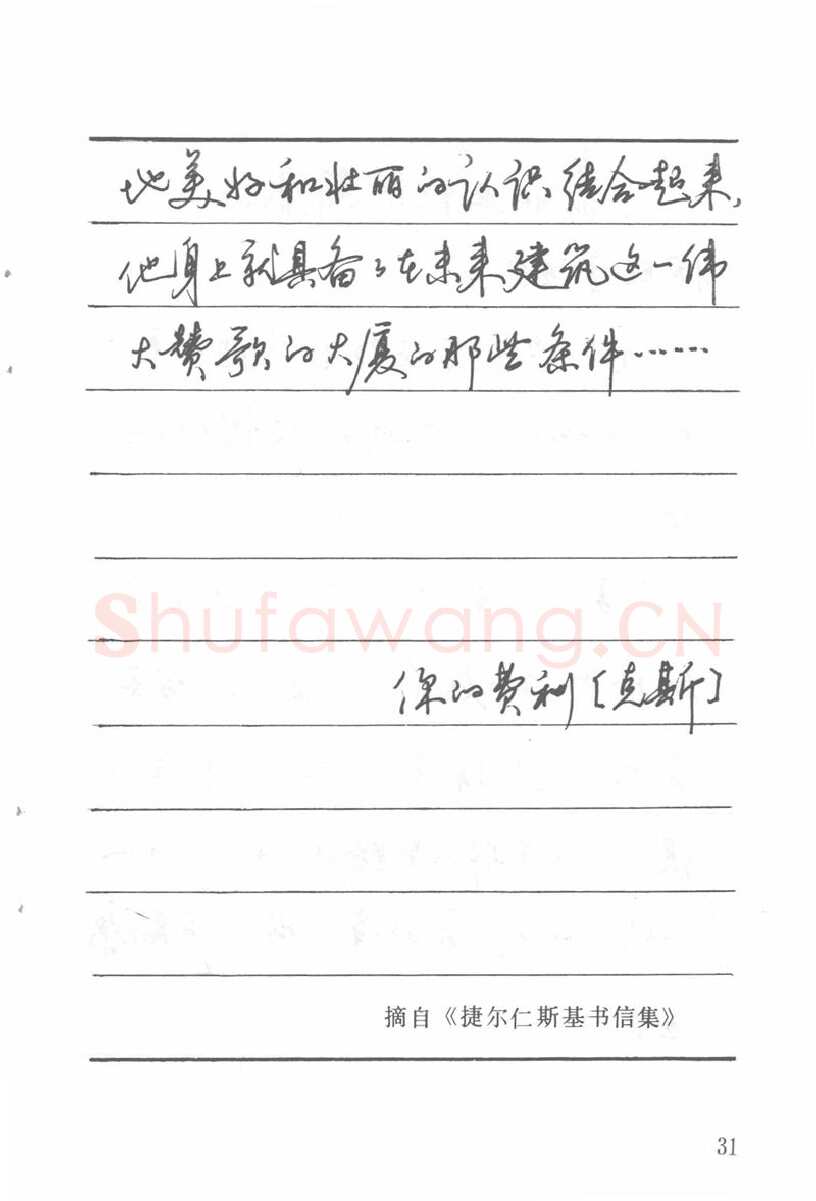 地美好和壮丽的认识结合起来,
他身上就具备了在未来建筑这一伟
大赞歌的大厦的那些条件……
Shufawang.CN
你的费利〔克斯〕
摘自《捷尔仁斯基书信集》
31